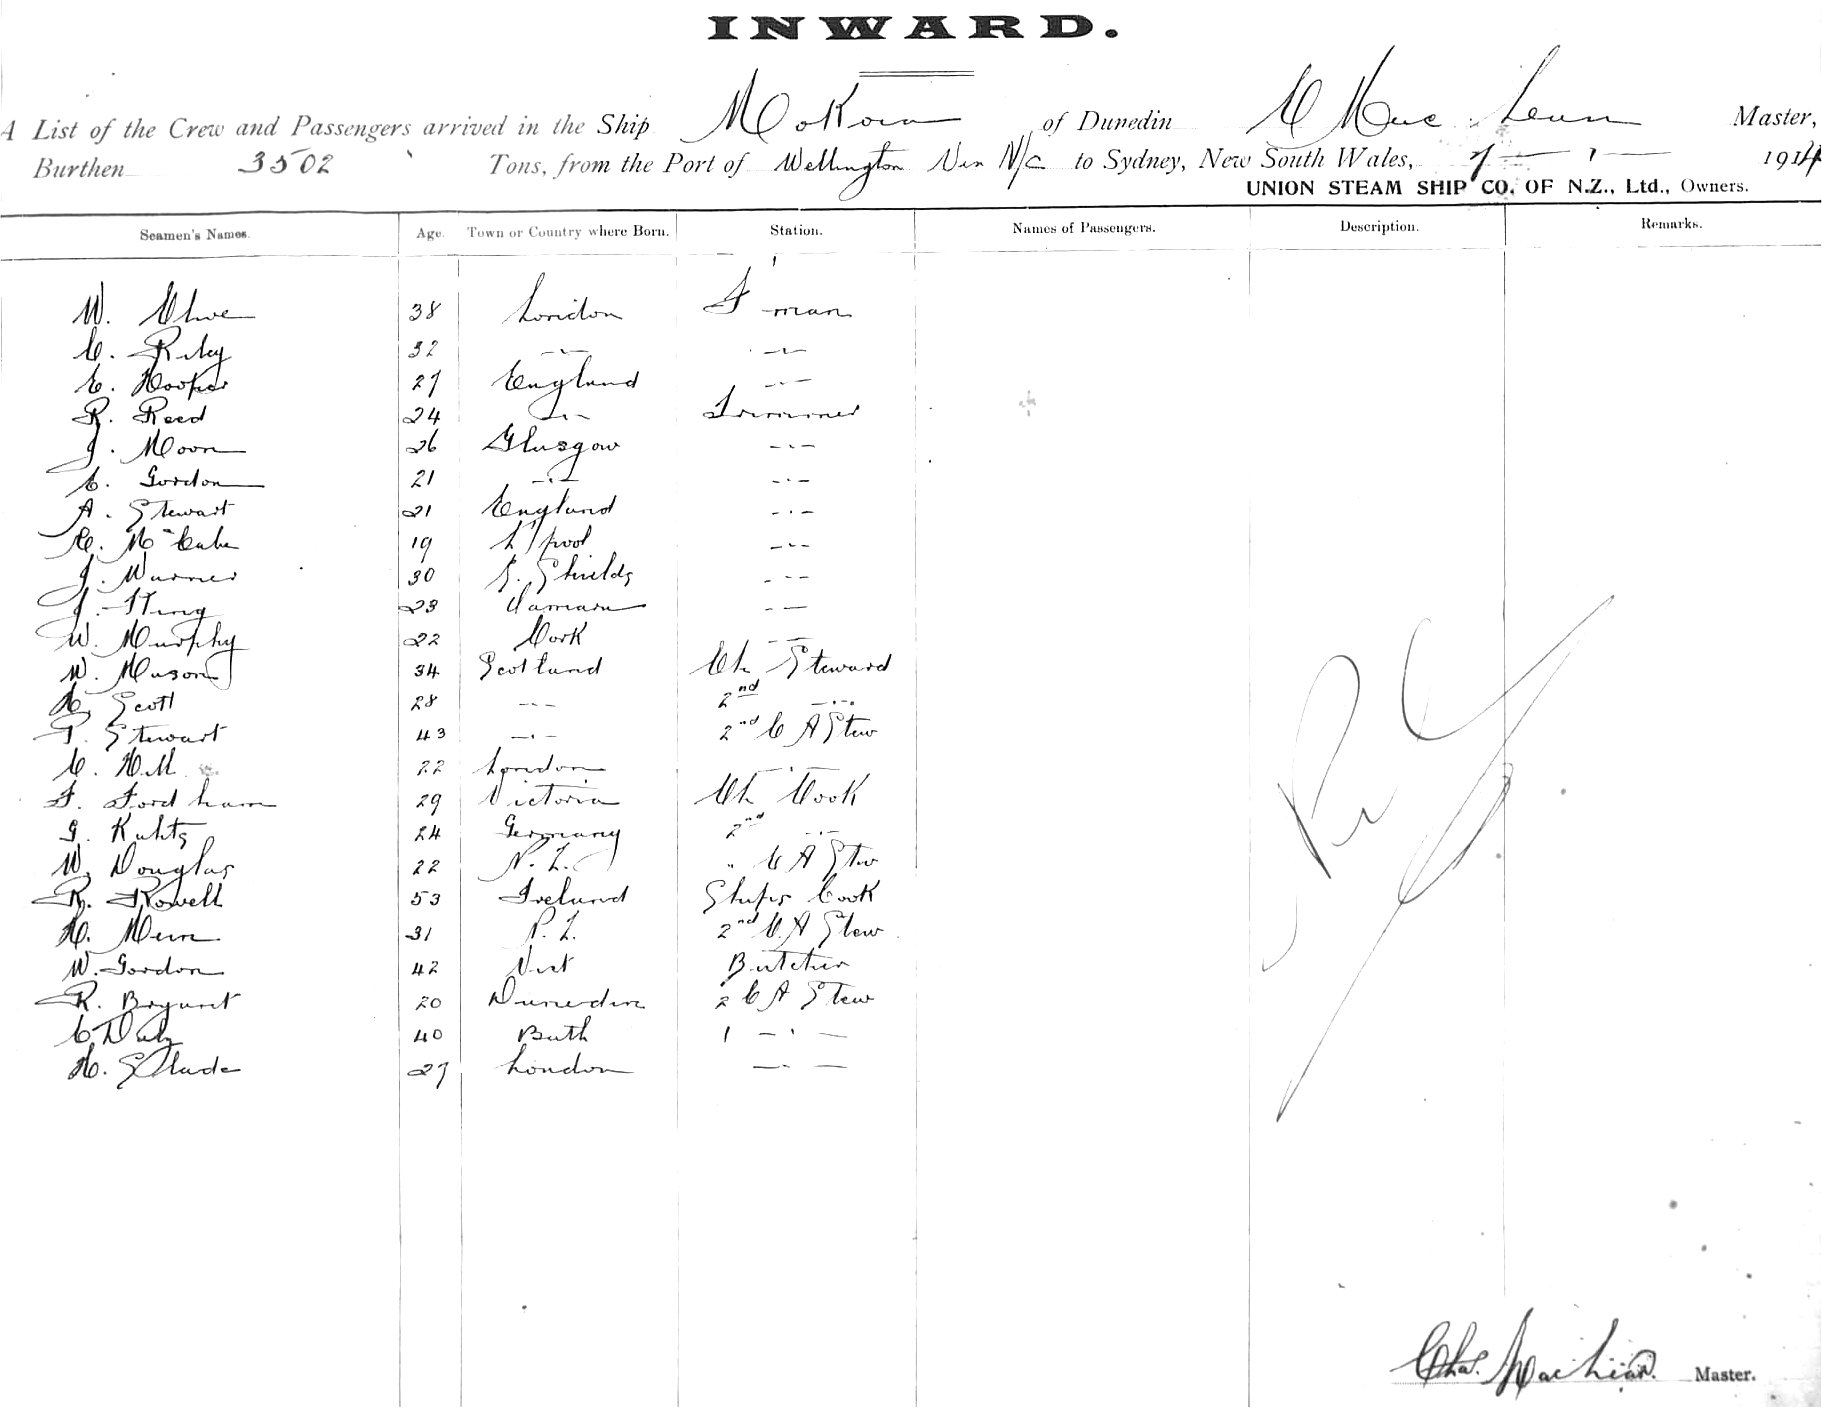 INWARD.
A List of the Crew and Passengers arrived in the Ship Mokoia of Dunedin C MacLean Master,
Burthen 3502 Tons, from the Port of Wellington New N/C to Sydney, New South Wales, 7 — 1 — 1914
UNION STEAM SHIP CO. OF N.Z., Ltd., Owners.
Seamen's Names. Age. Town or Country where Born. Station. Names of Passengers. Description. Remarks.
W. Clive 38 London F man
C. Riley 32 -"- -"-
C. Hooper 27 England -"-
R. Reed 24 -"- Trimmer
J. Moon 26 Glasgow -"-
C. Gordon 21 -"- -"-
A. Stewart 21 England -"-
C. McCabe 19 L'pool -"-
J. Warner 30 S. Shields -"-
J. King 23 Oamaru -"-
W. Murphy 22 Cork -"-
W. Mason 34 Scotland Ch Steward
H. Scott 28 -"- 2nd -"-
P. Stewart 43 -"- 2nd C A Stew
C. Hill 22 London -"-
F. Fordham 29 Victoria Ch Cook
G. Kuhtz 24 Germany 2nd -"-
W. Douglas 22 N. Z. " C A Stw
R. Rowell 53 Ireland Ships Cook
H. 31 N. Z. 2nd C. A Stew
W. Gordon 42 Vict Butcher
R. Bryant 20 Dunedin 2 C A Stew
C Daly 40 Bath 1 -"-
H. Slade 27 London -"-
Chas. MacLean. Master.